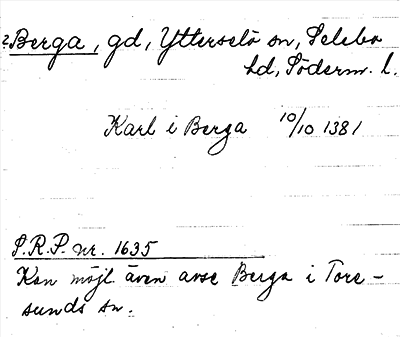 ?Berga, gd, Ytterselö sn, Selebo
hd, Söderm. l.
Karl i Berga 10/10 1381
S.R.P. nr. 1635
Kan möjl. även avse Berga i Tore-
sunds sn.